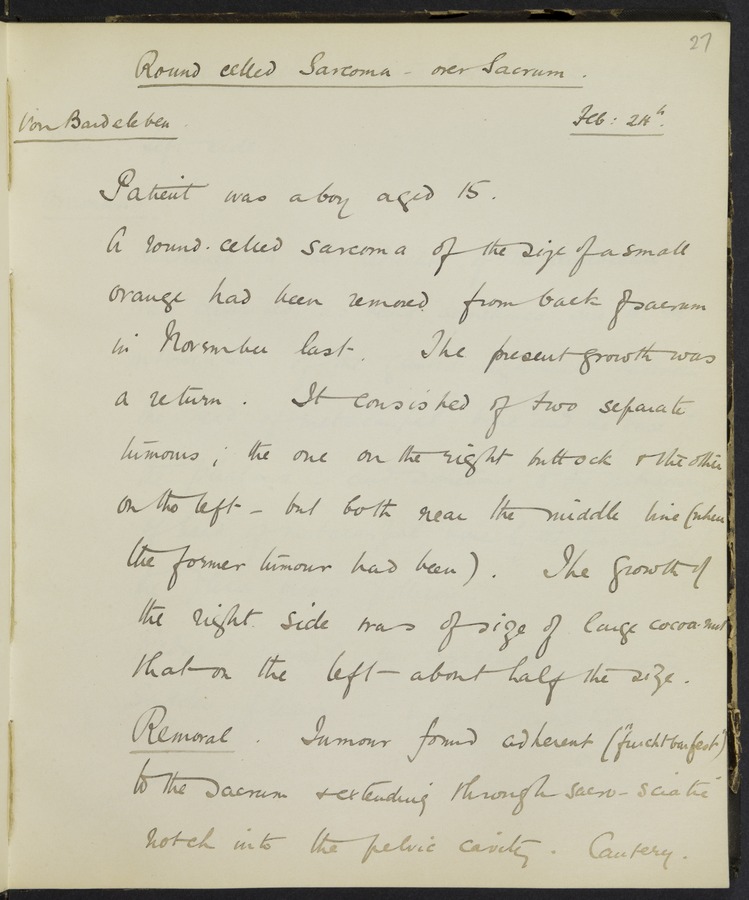 27
Round celled Sarcoma - over Sacrum.
Von Bardeleben Feb: 24th.
Patient was a boy aged 15.
A round-celled sarcoma of the size of a small
orange had been removed from back of sacrum
in November last. The present growth was
a return. It consisted of two separate
tumours; the one on the right buttock & the other
on the left - but both near the middle line (when
the former tumour had been). The growth of
the right side was of size of large cocoa-nut
that on the left - about half the size.
Removal. Tumour found adherent ("furchtbar fest")
to the sacrum & extending through sacro-sciatic
notch into the pelvic cavity. Cautery.